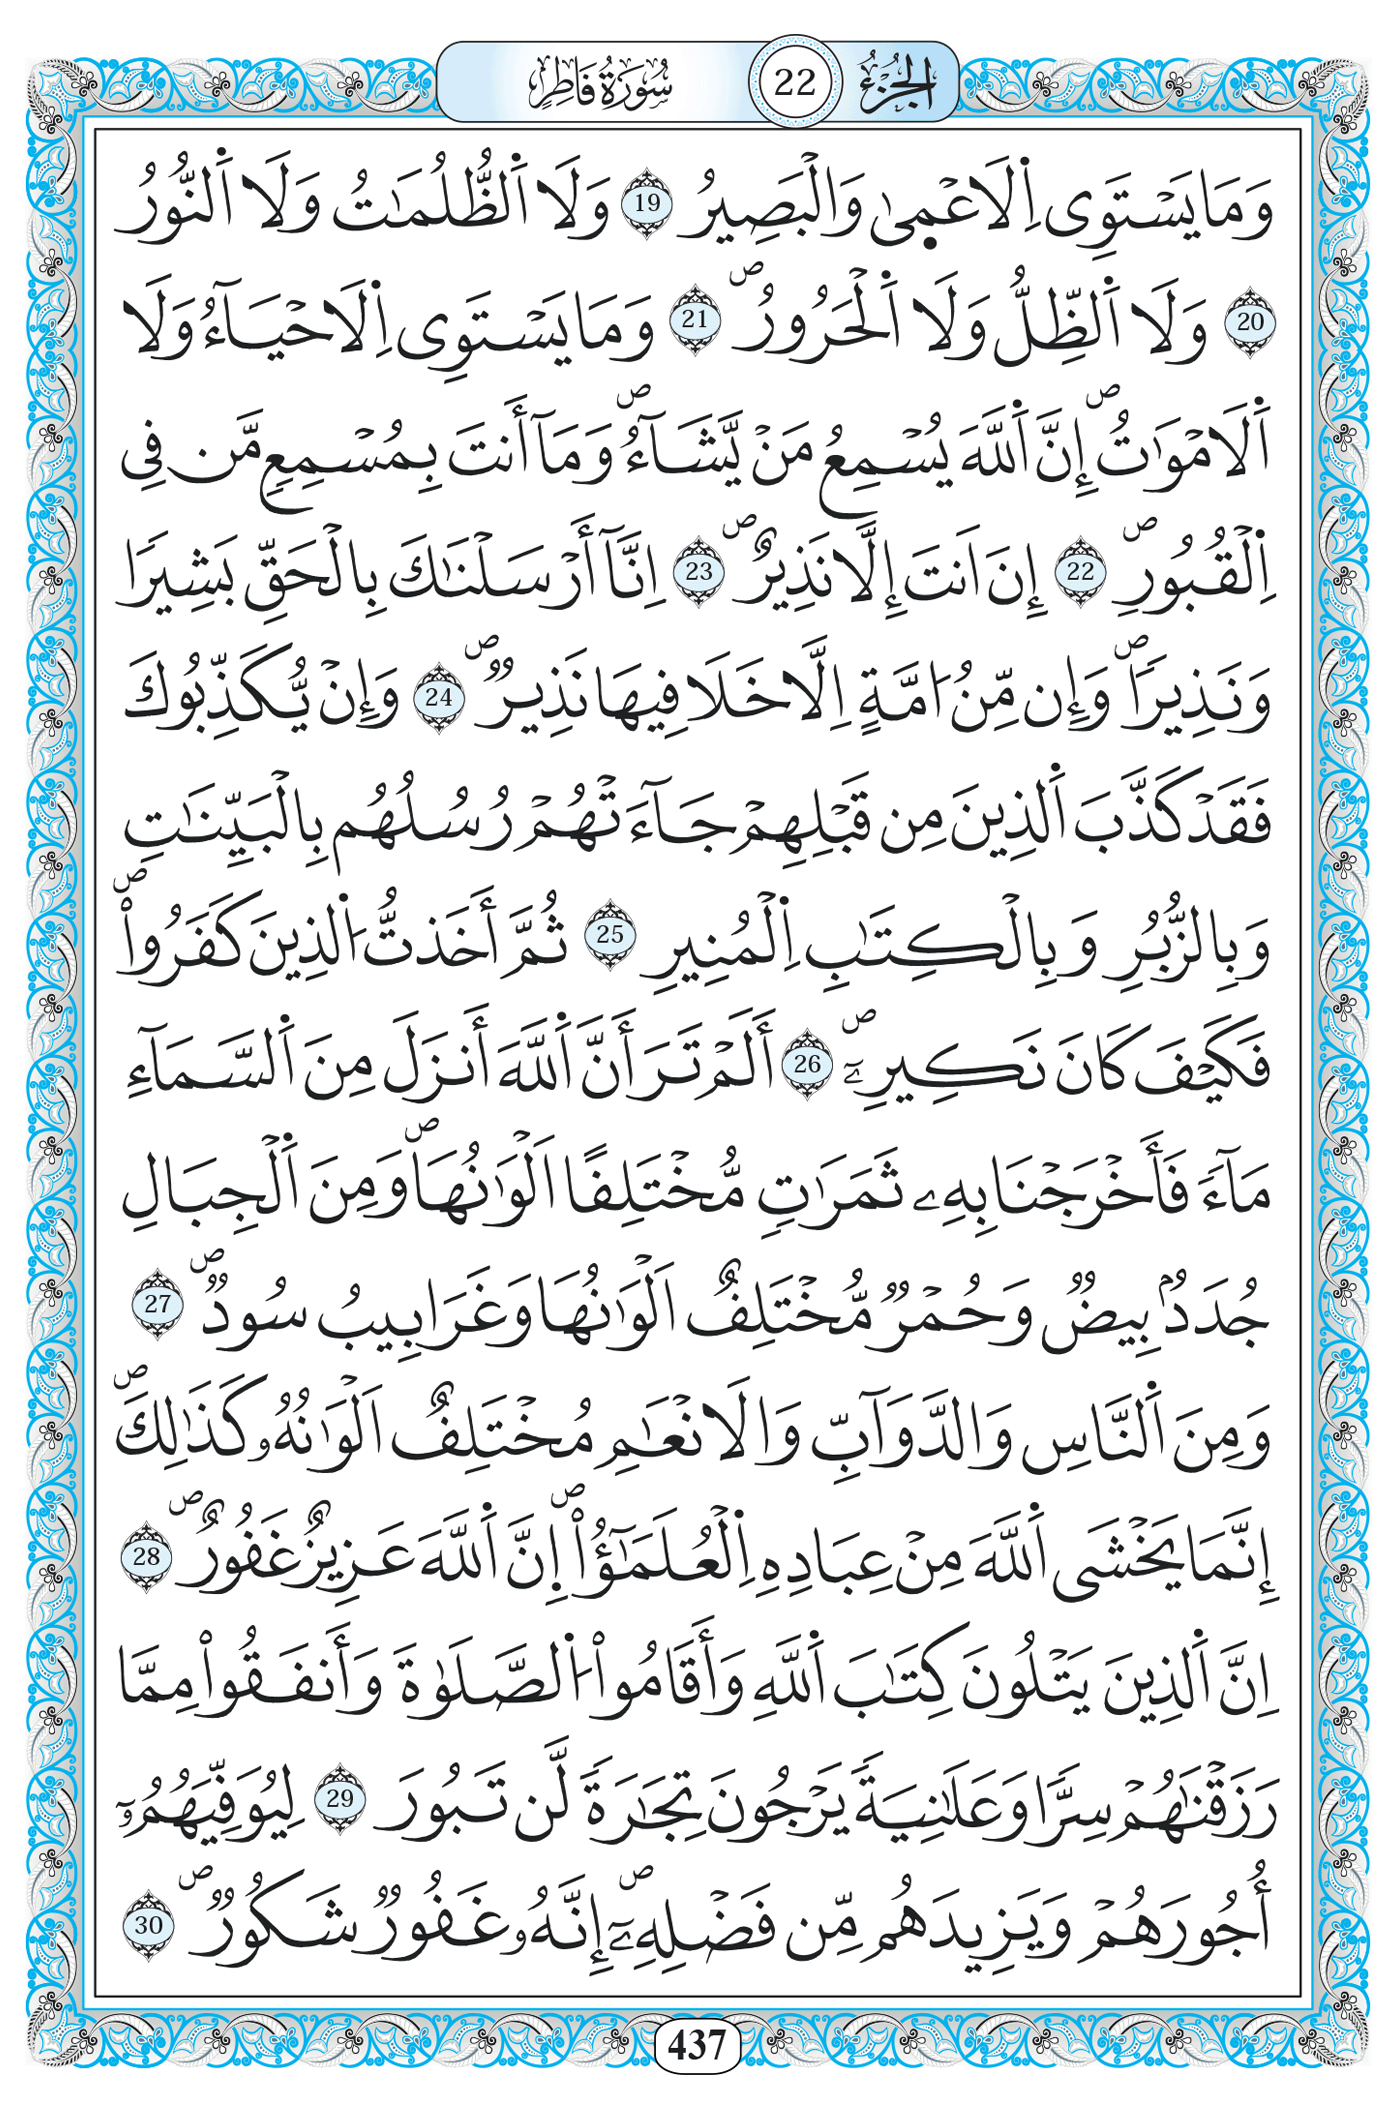 الجزء 22 سورة فاطر
وَمَا يَسْتَوِي اِ۬لَاعْم۪يٰ وَالْبَصِيرُ 19 وَلَا اَ۬لظُّلُمَٰتُ وَلَا اَ۬لنُّورُ
20 وَلَا اَ۬لظِّلُّ وَلَا اَ۬لْحَرُورُۖ 21 وَمَا يَسْتَوِي اِ۬لَاحْيَآءُ وَلَا
اَ۬لَامْوَٰتُۖ إِنَّ اَ۬للَّهَ يُسْمِعُ مَنْ يَّشَآءُۖ وَمَآ أَنتَ بِمُسْمِعٖ مَّن فِي
اِ۬لْقُبُورِۖ 22 إِنَ اَنتَ إِلَّا نَذِيرٌۖ 23 اِنَّآ أَرْسَلْنَٰكَ بِالْحَقِّ بَشِيراٗ
وَنَذِيراٗۖ وَإِن مِّنُ ا۟مَّةٍ اِلَّا خَلَا فِيهَا نَذِيرٞۖ 24 وَإِنْ يُّكَذِّبُوكَ
فَقَدْ كَذَّبَ اَ۬لذِينَ مِن قَبْلِهِمْ جَآءَتْهُمْ رُسُلُهُم بِالْبَيِّنَٰتِ
وَبِالزُّبُرِ وَبِالْكِتَٰبِ اِ۬لْمُنِيرِ 25 ثُمَّ أَخَذتُّ اُ۬لذِينَ كَفَرُواْۖ
فَكَيْفَ كَانَ نَكِيرِۦٓۖ 26 أَلَمْ تَرَ أَنَّ اَ۬للَّهَ أَنزَلَ مِنَ اَ۬لسَّمَآءِ
مَآءٗ فَأَخْرَجْنَا بِهِۦ ثَمَرَٰتٖ مُّخْتَلِفاً اَلْوَٰنُهَاۖ وَمِنَ اَ۬لْجِبَالِ
جُدَدُۢ بِيضٞ وَحُمْرٞ مُّخْتَلِفٌ اَلْوَٰنُهَا وَغَرَابِيبُ سُودٞۖ 27
وَمِنَ اَ۬لنَّاسِ وَالدَّوَآبِّ وَالَانْعَٰمِ مُخْتَلِفٌ اَلْوَٰنُهُۥ كَذَٰلِكَۖ
إِنَّمَا يَخْشَى اَ۬للَّهَ مِنْ عِبَادِهِ اِ۬لْعُلَمَٰٓؤُاْۖ اِ۪نَّ اَ۬للَّهَ عَزِيزٌ غَفُورٌۖ 28
اِنَّ اَ۬لذِينَ يَتْلُونَ كِتَٰبَ اَ۬للَّهِ وَأَقَامُواْ اُ۬لصَّلَوٰةَ وَأَنفَقُواْ مِمَّا
رَزَقْنَٰهُمْ سِرّاٗ وَعَلَٰنِيَةٗ يَرْجُونَ تِجَٰرَةٗ لَّن تَبُورَ 29 لِيُوَفِّيَهُمُۥٓ
أُجُورَهُمْ وَيَزِيدَهُم مِّن فَضْلِهِۦٓۖ إِنَّهُۥ غَفُورٞ شَكُورٞۖ 30
437